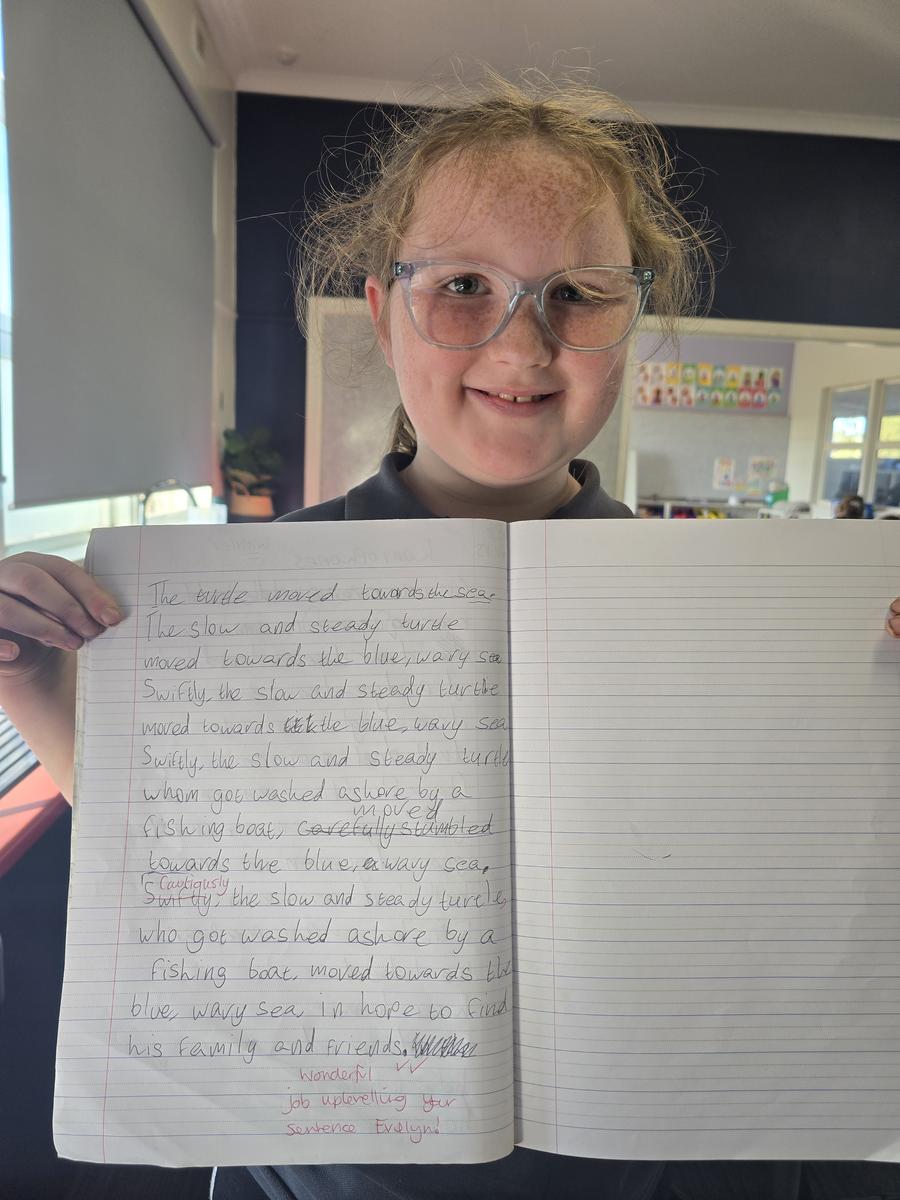 The turtle moved towards the sea.
The slow and steady turtle
moved towards the blue, wavy sea
Swiftly, the slow and steady turtle
moved towards the blue, wavy sea
Swiftly, the slow and steady turtle
whom got washed ashore by a
moved
fishing boat, carefully stumbled
towards the blue, wavy sea.
Cautiously
Swiftly, the slow and steady turtle,
who got washed ashore by a
fishing boat, moved towards the
blue, wavy sea, in hope to find
his family and friends.
Wonderful
job uplevelling your
sentence Evelyn!